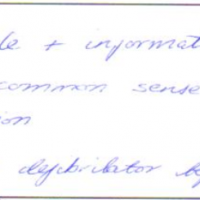 le + informat
common sense
ion
defibrillator by